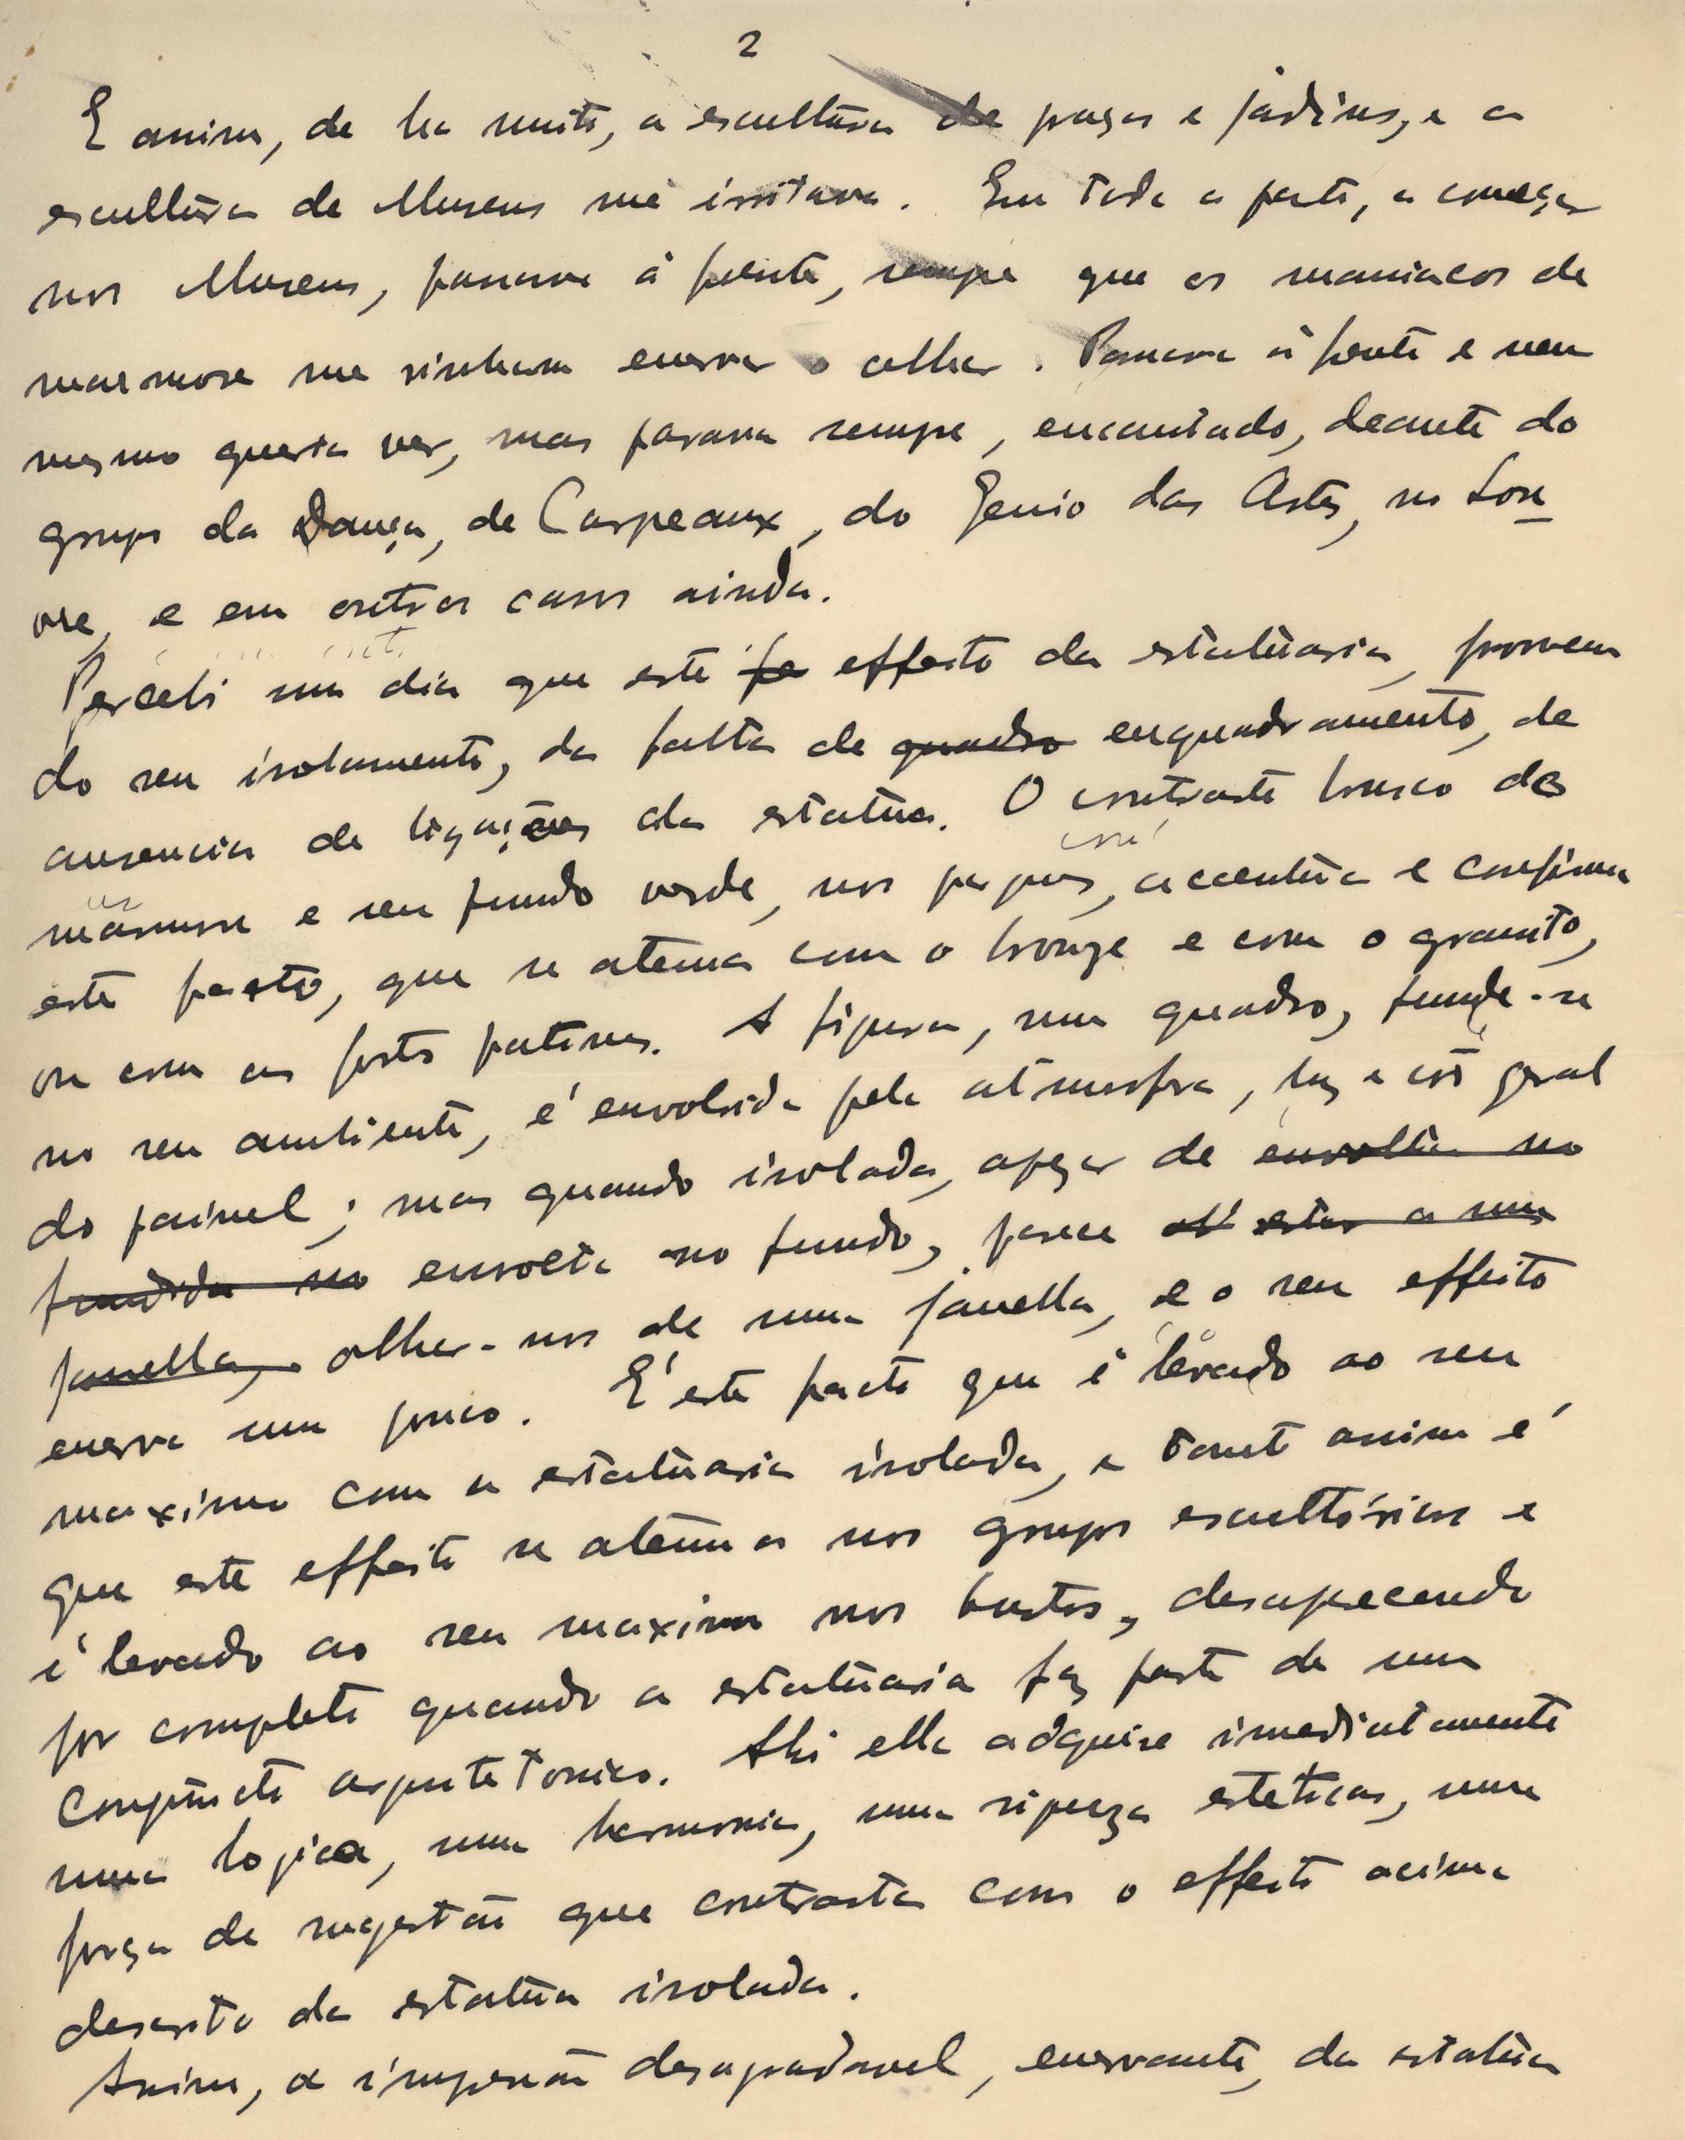 2
E assim, de ha muito, a escultura de praças e jardins, e a
escultura de Museus me irritava. Em toda a parte, a começar
nos Museus, passava á frente, sempre que os maniacos de
marmore me vinham enervar o olhar. Passava á frente e nem
mesmo queria ver, mas parava sempre, encantado, deante do
grupo da Dança, de Carpeaux, do Genio das Artes, no Lou
vre, e em outros casos ainda.
Percebi um dia que este fa effeito da estatuaria, provem
do seu isolamento, da falta de quadro enquadramento, de
ausencia de ligações da estatua. O contraste brusco do
marmore e seu fundo verde, nos parques, accentúa e confirma
este facto, que se atenua com o bronze e com o granito,
ou com as fortes patinas. A figura, num quadro, funde-se
no seu ambiente, é envolvida pela atmosfera, luz e côr geral
do painel; mas quando isolada, apezar de envolta no
fundida no envolta no fundo, parece estar a uma
janella, olhar-nos de uma janella, e o seu effeito
enerva um pouco. E' este facto que é levado ao seu
maximo com a estatuaria isolada, e tanto assim é
que este effeito se atenua nos grupos escultóricos e
é levado ao seu maximo nos bustos, desaparecendo
por completo quando a estatuaria faz parte de um
conjuncto arquitetonico. Ahi ella adquire imediatamente
uma logica, uma harmonia, uma riqueza esteticas, uma
força de sugestão que contrasta com o effeito acima
descrito da estatua isolada.
Assim, a impressão desagradavel, enervante, da estatua